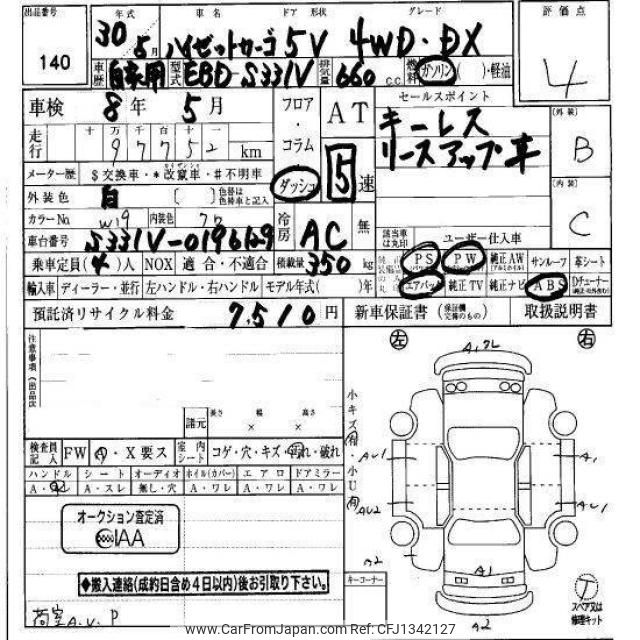 出品番号 年式 車名 ドア 形状 グレード 評価点
140 30 5月 ハイゼットカーゴ 5V 4WD・DX 4
車歴 自家用 型式 EBD-S331V 排気量 660 c.c. ガソリン ( )・軽油
車検 8年 5月 フロア・コラム AT セールスポイント
キーレス
リースアップ車
走行 十 万 千 百 十 一
97752 km
メーター歴 $交換車・*改竄車・#不明車
ダッシュ 5速
外装 B
内装 C
外装色 白 ( ) 色替は色替車と記入
カラーNo W19 内装色
冷房 AC 無
該当車は丸印 ユーザー仕入車
車台番号 S331V-0196129
PS PW 純正AW サンルーフ 革シート
乗車定員(4)人 NOX 適合・不適合 積載量 350 kg
エアバッグ 純正TV 純正ナビ ABS Dチューナー
輸入車 ディーラー・並行 左ハンドル・右ハンドル モデル年式( )年
預託済リサイクル料金 7,510円 新車保証書 (保証継交換のもの) 取扱説明書
注意事項(出品店
左 右
A1 ワレ
小キズ有・小U有
諸元 長さ 幅 高さ
× ×
AU1 A1
検査員記入 FW A・X要ス 室内シート コゲ・穴・キズ・汚れ・破れ
ハンドル シート オーディオ ホイル(カバー) エアロ ドアミラー
A・スレ A・スレ 無し・穴 A・ワレ A・ワレ A・ワレ
AU2 AU1
オークション査定済
IAA
A2 A1
◆搬入連絡(成約日含め4日以内)後お引取り下さい。
キーコーナー
T
スペア又は修理キット
荷室A.U.P
A2
www.CarFromJapan.com Ref:CFJ1342127